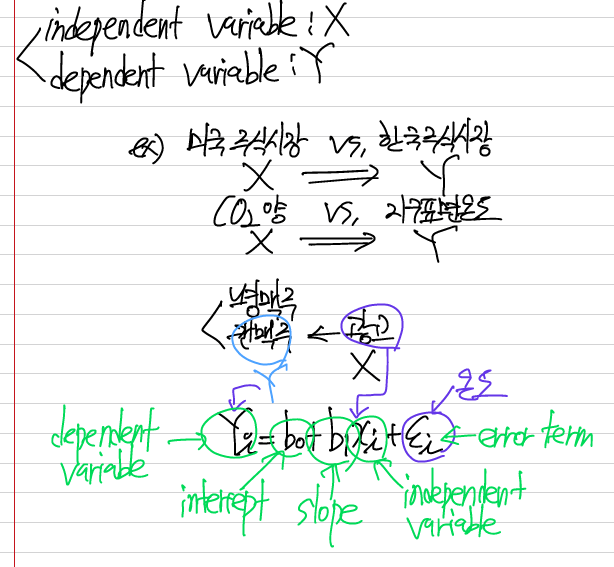 independent variable : X
dependent variable : Y
ex) 미국 주식시장 vs, 한국주식시장
X ⟹ Y
CO₂양 vs, 지구표면온도
X ⟹ Y
냉맥주
← 광고
Y X
온도
dependent variable → Yi = b₀ + b₁xi + εi ← error term
intercept slope independent variable